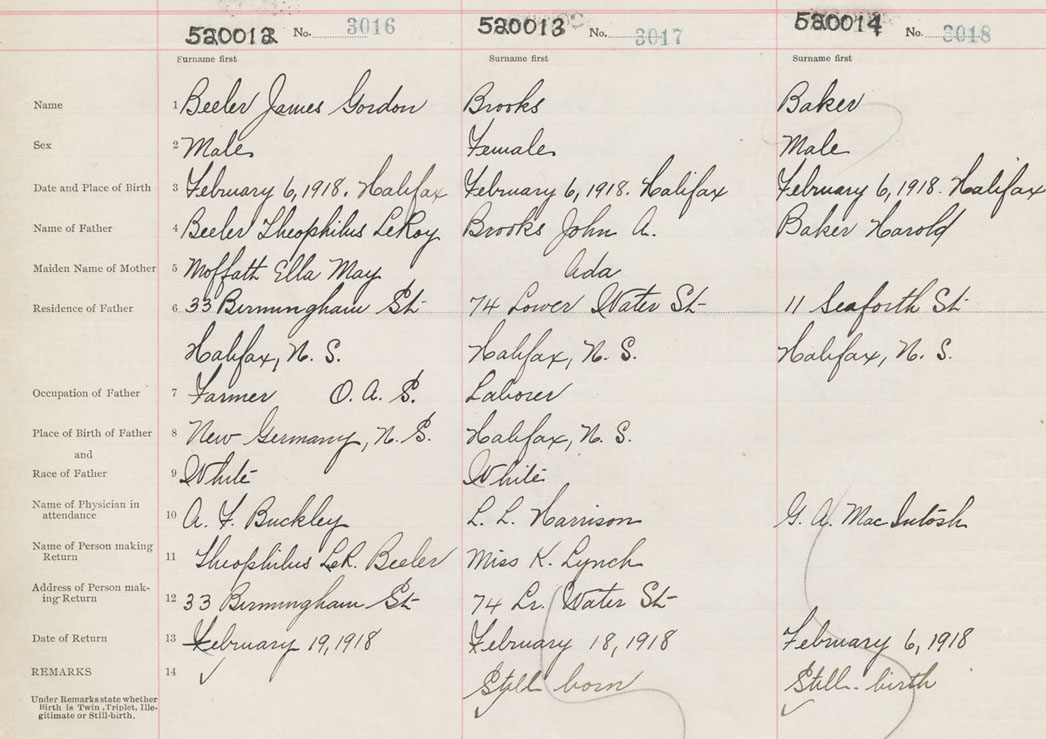 520012 No. 3016 520013 No. 3017 520014 No. 3018
Surname first Surname first Surname first
Name 1 Beeler James Gordon Brooks Baker
Sex 2 Male Female Male
Date and Place of Birth 3 February 6, 1918. Halifax February 6, 1918. Halifax February 6, 1918. Halifax
Name of Father 4 Beeler Theophilus LeRoy Brooks John A. Baker Harold
Maiden Name of Mother 5 Moffath Ella May Ada
Residence of Father 6 33 Birmingham St 74 Lower Water St 11 Seaforth St
Halifax, N. S. Halifax, N. S. Halifax, N. S.
Occupation of Father 7 Farmer O. A. S. Laborer
Place of Birth of Father 8 New Germany, N. S. Halifax, N. S.
and
Race of Father 9 White White
Name of Physician in
attendance 10 A. F. Buckley L. L. Harrison G. A. MacIntosh
Name of Person making
Return 11 Theophilus LeR. Beeler Miss K. Lynch
Address of Person mak-
ing Return 12 33 Birmingham St 74 Lr. Water St
Date of Return 13 February 19, 1918 February 18, 1918 February 6, 1918
REMARKS 14 Still born Still-birth
Under Remarks state whether
Birth is Twin, Triplet, Ille-
gitimate or Still-birth.